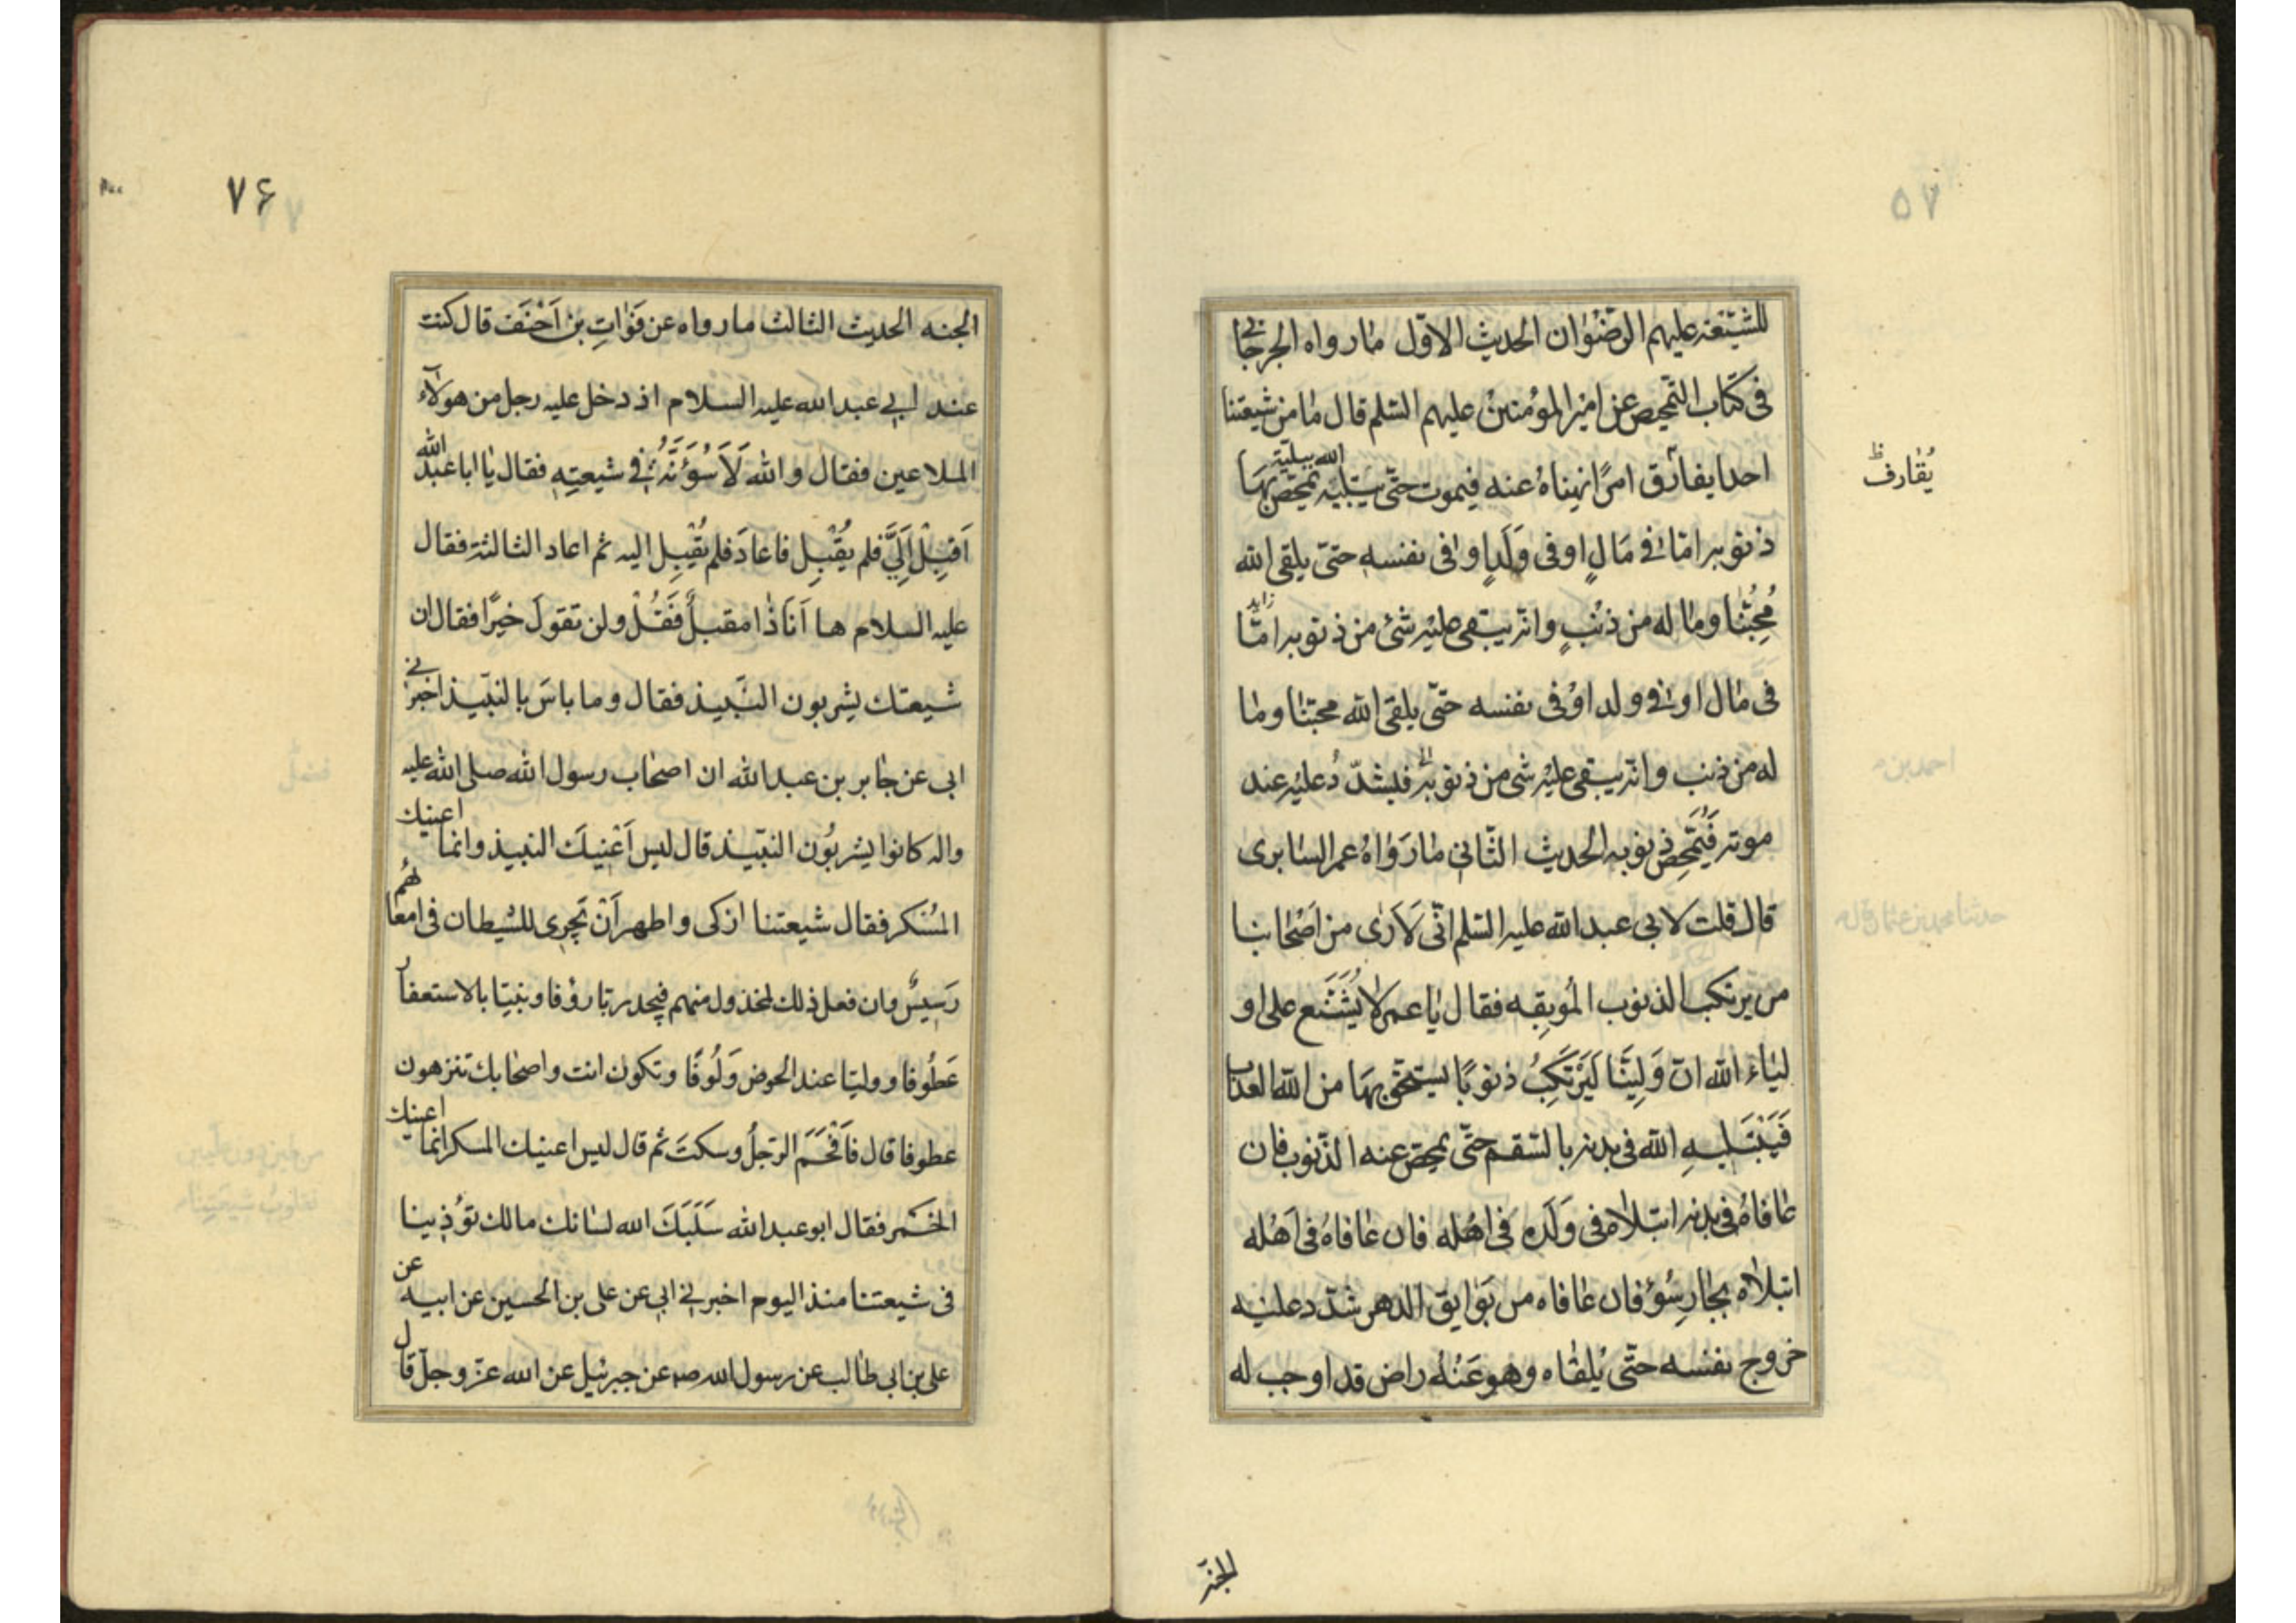 للشّيعة عليهم الرّضوان الحديث الاوّل ما رواه الجرجانی
فی کتاب التّمحیص عن امیر المؤمنین علیهم السّلم قال ما من شیعتنا
احد ایفارق امرًا نهیناهُ عنه فیموت حتّی یبتلیه الله ببلیّة تمحّص بهَا
یُقارف ظ
ذنوبه امّا فی مَالٍ او فی وَلَدٍ او فی نفسه حتیّ یلقی الله
مُحِبُّنا وما له من ذنْبٍ وانّه یبقی علیْه شئ من ذنوبه امّا زاید
فی مال او فی ولد اوْ فی نفسه حتّی یلقی الله محبّنا وما
له من ذنب وانّه یبقی علیْه شی من ذنوبه فیشدّدُ علیْه عند
موته فَتُمَحِّص ذنوبه الحدیث الثّانی ما رَوٰاهُ عمر السّابری
قال قلت لابی عبد الله علیه السّلم انّی لَاَرٰی من اَصْحَابنا
من یرتکب الذنوب المُوبِقِه فقال یا عمر لا یُشَنَّع علی او
لیاء الله انّ وَلِیَّنا لَیَرْتَکِبُ ذنوبًا یستحقّ بهَا من الله العذاب
فَیَبْتَلیهِ الله فی بدنه بالسّقم حتّی یمحّص عنه الذّنوب فان
عٰافاهُ فی بدنه ابتلاه فی وَلَدِه فی اهْله فان عٰافاهُ فی اَهْله
ابتلاه بجٰارِ سُوْءٍ فان عٰافاه من بَوٰایق الدهر شدّد علیْه
خروج نفسه حتّی یلقٰاه وهو عَنْهُ راض قد اوجب له
الجنّه
۷۶
الجنه الحدیث الثالث ما رواه عن فَوٰاتِ بن اَحْنَفَ قال کنت
عند ابی عبد الله علیه السلام اذ دخل علیه رجل من هولآء
الملاعین فقال والله لَاَسُؤَنَّهُ فی شیعتِهِ فقال یا ابا عبد الله
اَقبِلْ اِلَیَّ فلم یُقْبِل فاعادَ فلم یُقْبِل الیه ثم اعاد الثالثة فقال
علیه السلام ها اَنَا ذٰا مقبلٌ فَقُلْ ولن تقولَ خیرًا فقال ان
شیعتك یشربون النّبیذ فقال وما باسَ بالنبّیذ اخبرنی
ابی عن جٰابر بن عبد الله ان اصحٰاب رسول الله صلی الله علیه
واله کانوا یشربُون النبّیذ قال لیس اَعْنیكَ النبیذ وانما اعنیك
المُسْکر فقال شیعتنا ازکی واطهر اَنْ یَجری للشیطان فی امعائهُم
رَسیسٌ وان فعل ذلك المخذول منهم فیجد ربّا رؤفا ونبیّا بالاستعفار
عَطُوفا وولیّا عند الحوض وَلُوفًا وتکون انت واصحابك تنزهون
عطوفا قال فاَفْحَمَ الرّجلُ وسکتَ ثم قال لیس اعنیك المسکر انما اعنیك
الخمر فقال ابو عبد الله سَلَبَكَ الله لسٰانك مالك توُذینا
فی شیعتنا منذ الیوم اخبرنی ابی عن علی بن الحسین عن ابیه عن
علی بن ابی طٰالب عن رسول الله صم عن جبرئیل عن الله عزّ وجلّ قال